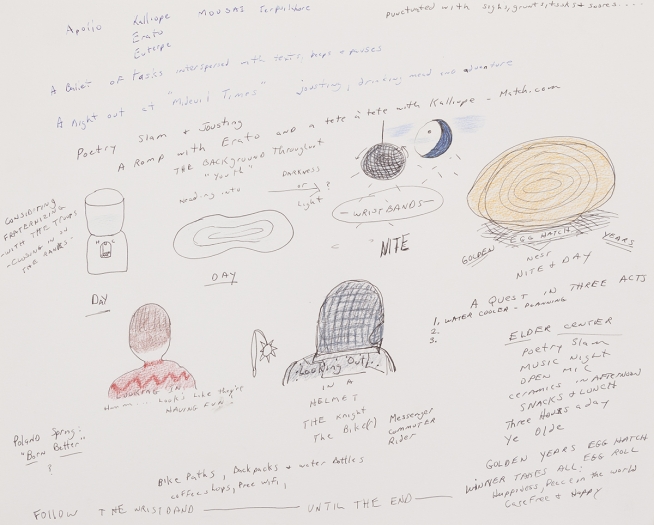 Apollo Kalliope MOUSAI Terpsichore
Erato
Euterpe
punctuated with sighs, grunts, and
A Ballet of Tasks interspersed with texts, + pauses
A Night out at "Midevil Times" jousting, drinking mead and adventure
Poetry Slam + Jousting
A Romp with Erato and a tete à tete with Kalliope - Match.com
THE BACKGROUND Throughout
"Youth"
heading into
DARKNESS
or ?
Light
CONSIDERING
FRATERNIZING
-WITH THE TROOPS
-CLOSING IN ON
THE RANKS-
H C
DAY
DAY
WRISTBANDS
NITE
GOLDEN EGG HATCH YEARS
nest
NITE + DAY
A QUEST IN THREE ACTS
1. WATER COOLER - PLANNING
2.
3.
ELDER CENTER
Poetry Slam
MUSIC Night
OPEN MIC
ceramics in AFTERNOON
SNACKS + LUNCH
Three Hours a day
Ye Olde
LOOKING IN
Hmm.... Looks like they're
HAVING FUN
"Looking Out"
IN A
HELMET
THE Knight
The Bike(r)
Messenger
COMMUTER
Rider
Poland Spring:
"Born Better"
?
Bike Paths, Backpacks + water Bottles
coffee shops, free wifi,
GOLDEN YEARS EGG HATCH
WINNER TAKES ALL: EGG ROLL
Happiness, Peace on the world
CareFree + Happy
FOLLOW THE WRISTBAND UNTIL THE END